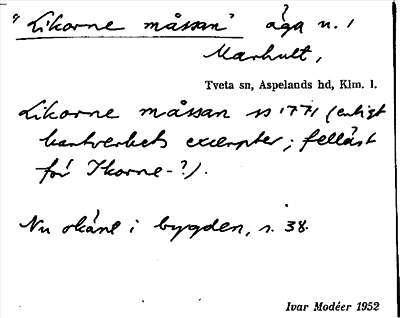 "Likorne måssan" äga n. 1
Marhult,
Tveta sn, Aspelands hd, Klm. l.
Likorne måssan 1771 (enligt
kartverkets excerpter; felläst
för Ikorne-?).
Nu okänt i bygden, s. 38.
Ivar Modéer 1952